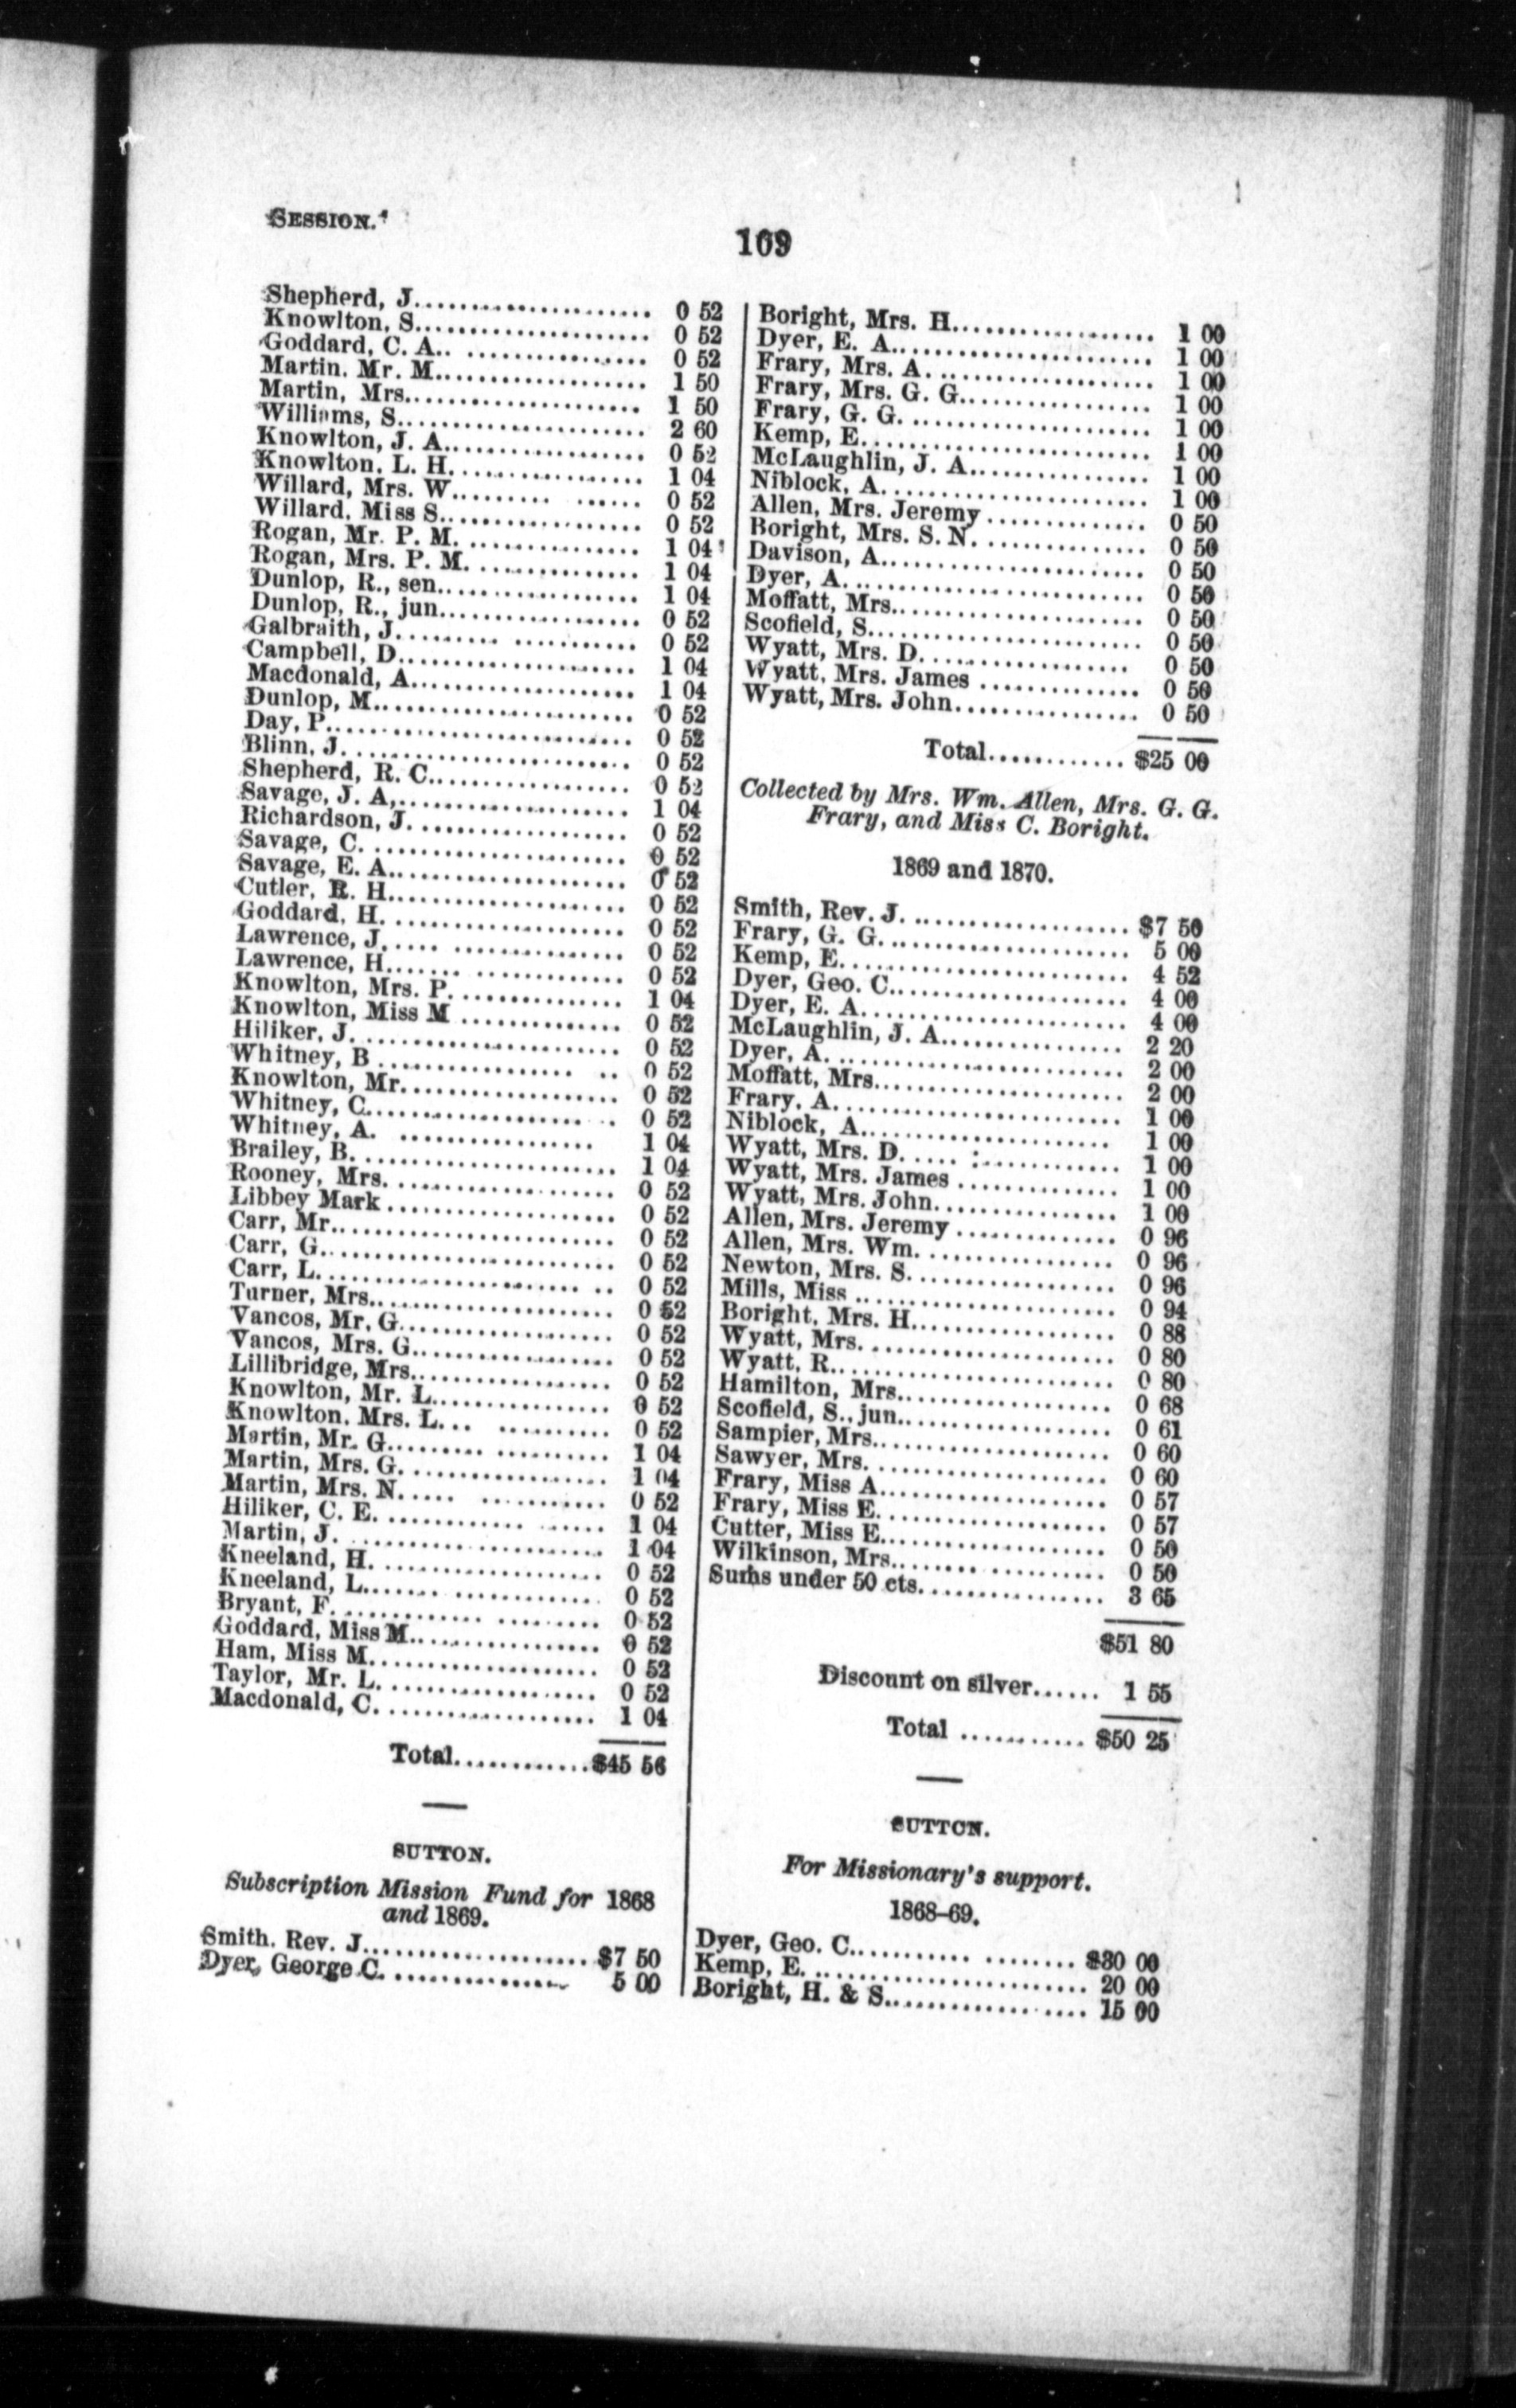 SESSION.
109
Shepherd, J. 0 52
Knowlton, S. 0 52
Goddard, C. A. 0 52
Martin, Mr. M. 1 50
Martin, Mrs. 1 50
Williams, S. 2 60
Knowlton, J. A. 0 52
Knowlton, L. H. 1 04
Willard, Mrs. W. 0 52
Willard, Miss S. 0 52
Rogan, Mr. P. M. 1 04
Rogan, Mrs. P. M. 1 04
Dunlop, R., sen. 1 04
Dunlop, R., jun. 0 52
Galbraith, J. 0 52
Campbell, D. 1 04
Macdonald, A. 1 04
Dunlop, M. 0 52
Day, P. 0 52
Blinn, J. 0 52
Shepherd, R. C. 0 52
Savage, J. A, 1 04
Richardson, J. 0 52
Savage, C. 0 52
Savage, E. A. 0 52
Cutler, R. H. 0 52
Goddard, H. 0 52
Lawrence, J. 0 52
Lawrence, H. 0 52
Knowlton, Mrs. P. 1 04
Knowlton, Miss M 0 52
Hiliker, J. 0 52
Whitney, B 0 52
Knowlton, Mr. 0 52
Whitney, C. 0 52
Whitney, A. 1 04
Brailey, B. 1 04
Rooney, Mrs. 0 52
Libbey Mark 0 52
Carr, Mr. 0 52
Carr, G. 0 52
Carr, L. 0 52
Turner, Mrs. 0 52
Vancos, Mr. G. 0 52
Vancos, Mrs. G. 0 52
Lillibridge, Mrs. 0 52
Knowlton, Mr. L. 0 52
Knowlton, Mrs. L. 0 52
Martin, Mr. G. 1 04
Martin, Mrs. G. 1 04
Martin, Mrs. N. 0 52
Hiliker, C. E. 1 04
Martin, J. 1 04
Kneeland, H. 0 52
Kneeland, L. 0 52
Bryant, F. 0 52
Goddard, Miss M. 0 52
Ham, Miss M. 0 52
Taylor, Mr. L. 0 52
Macdonald, C. 1 04
Total. $45 56
SUTTON.
Subscription Mission Fund for 1868
and 1869.
Smith. Rev. J. $7 50
Dyer, George C. 5 00
Boright, Mrs. H. 1 00
Dyer, E. A. 1 00
Frary, Mrs. A. 1 00
Frary, Mrs. G. G. 1 00
Frary, G. G. 1 00
Kemp, E. 1 00
McLaughlin, J. A. 1 00
Niblock, A. 1 00
Allen, Mrs. Jeremy 0 50
Boright, Mrs. S. N. 0 50
Davison, A. 0 50
Dyer, A. 0 50
Moffatt, Mrs. 0 50
Scofield, S. 0 50
Wyatt, Mrs. D. 0 50
Wyatt, Mrs. James 0 50
Wyatt, Mrs. John. 0 50
Total. $25 00
Collected by Mrs. Wm. Allen, Mrs. G. G.
Frary, and Miss C. Boright.
1869 and 1870.
Smith, Rev. J. $7 50
Frary, G. G. 5 00
Kemp, E. 4 52
Dyer, Geo. C. 4 00
Dyer, E. A. 4 00
McLaughlin, J. A. 2 20
Dyer, A. 2 00
Moffatt, Mrs. 2 00
Frary, A. 1 00
Niblock, A. 1 00
Wyatt, Mrs. D. 1 00
Wyatt, Mrs. James 1 00
Wyatt, Mrs. John. 1 00
Allen, Mrs. Jeremy 0 96
Allen, Mrs. Wm. 0 96
Newton, Mrs. S. 0 96
Mills, Miss 0 94
Boright, Mrs. H. 0 88
Wyatt, Mrs. 0 80
Wyatt, R. 0 80
Hamilton, Mrs. 0 68
Scofield, S., jun. 0 61
Sampier, Mrs. 0 60
Sawyer, Mrs. 0 60
Frary, Miss A. 0 57
Frary, Miss E. 0 57
Cutter, Miss E. 0 50
Wilkinson, Mrs. 0 50
Sums under 50 cts. 3 65
$51 80
Discount on silver. 1 55
Total $50 25
SUTTON.
For Missionary's support.
1868–69.
Dyer, Geo. C. $30 00
Kemp, E. 20 00
Boright, H. & S. 15 00